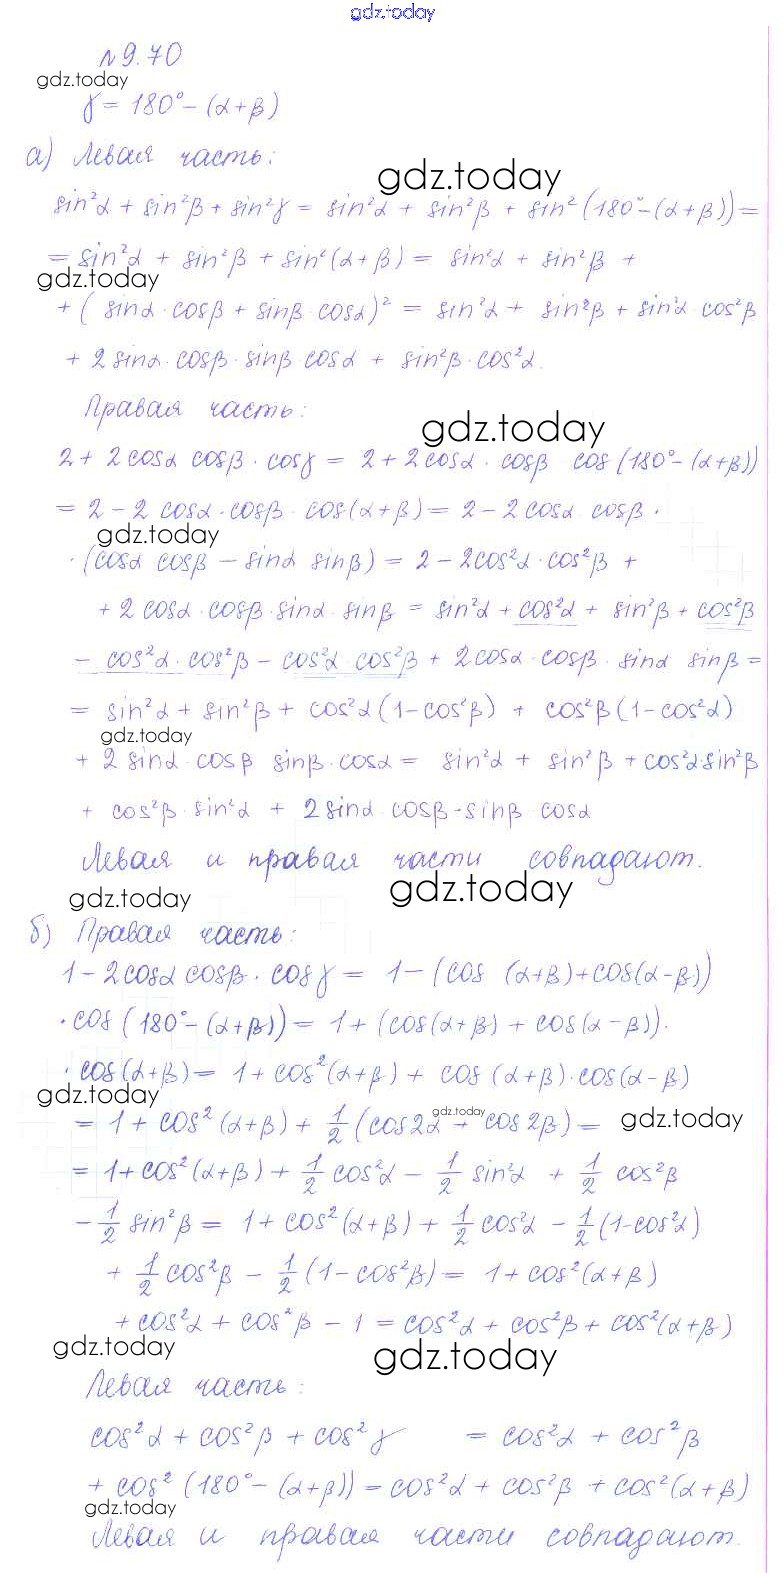 gdz.today
№9.70
gdz.today
γ = 180° - (α+β)
а) Левая часть:
gdz.today
sin²α + sin²β + sin²γ = sin²α + sin²β + sin²(180°-(α+β)) =
= sin²α + sin²β + sin²(α+β) = sin²α + sin²β +
gdz.today
+ ( sinα · cosβ + sinβ · cosα)² = sin²α + sin²β + sin²α · cos²β
+ 2 sinα · cosβ · sinβ cosα + sin²β · cos²α.
Правая часть:
gdz.today
2 + 2cosα cosβ · cosγ = 2 + 2cosα · cosβ cos(180°-(α+β))
= 2 - 2 cosα · cosβ · cos(α+β) = 2 - 2cosα cosβ ·
gdz.today
· (cosα cosβ - sinα sinβ) = 2 - 2cos²α · cos²β +
+ 2 cosα · cosβ · sinα · sinβ = sin²α + cos²α + sin²β + cos²β
- cos²α · cos²β - cos²α · cos²β + 2cosα · cosβ · sinα sinβ =
= sin²α + sin²β + cos²α(1-cos²β) + cos²β(1-cos²α)
gdz.today
+ 2 sinα · cosβ sinβ · cosα = sin²α + sin²β + cos²α·sin²β
+ cos²β · sin²α + 2sinα · cosβ · sinβ cosα
Левая и правая части совпадают.
gdz.today
gdz.today
б) Правая часть:
1 - 2cosα cosβ · cosγ = 1 - (cos (α+β) + cos(α-β))
· cos (180° - (α+β)) = 1 + (cos(α+β) + cos(α-β)) ·
· cos(α+β) = 1 + cos²(α+β) + cos (α+β) · cos(α-β)
gdz.today
= 1 + cos² (α+β) + 1/2 (cos2α + cos2β) =
gdz.today
gdz.today
= 1 + cos²(α+β) + 1/2 cos²α - 1/2 sin²α + 1/2 cos²β
- 1/2 sin²β = 1 + cos²(α+β) + 1/2 cos²α - 1/2 (1-cos²α)
+ 1/2 cos²β - 1/2 (1-cos²β) = 1 + cos²(α+β)
+ cos²α + cos²β - 1 = cos²α + cos²β + cos²(α+β)
gdz.today
gdz.today
Левая часть:
cos²α + cos²β + cos²γ = cos²α + cos²β
+ cos² (180° - (α+β)) = cos²α + cos²β + cos²(α+β)
gdz.today
Левая и правая части совпадают.